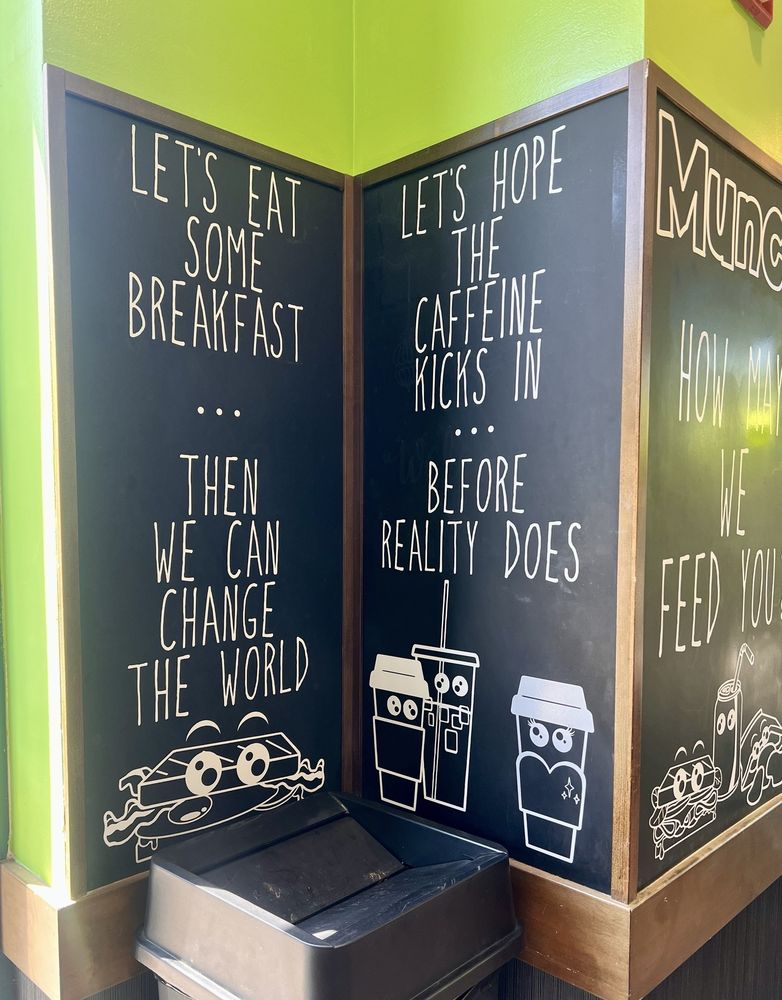 LET'S EAT
SOME
BREAKFAST
...
THEN
WE CAN
CHANGE
THE WORLD
LET'S HOPE
THE
CAFFEINE
KICKS IN
...
BEFORE
REALITY DOES
HOW MAY
WE
FEED YOU